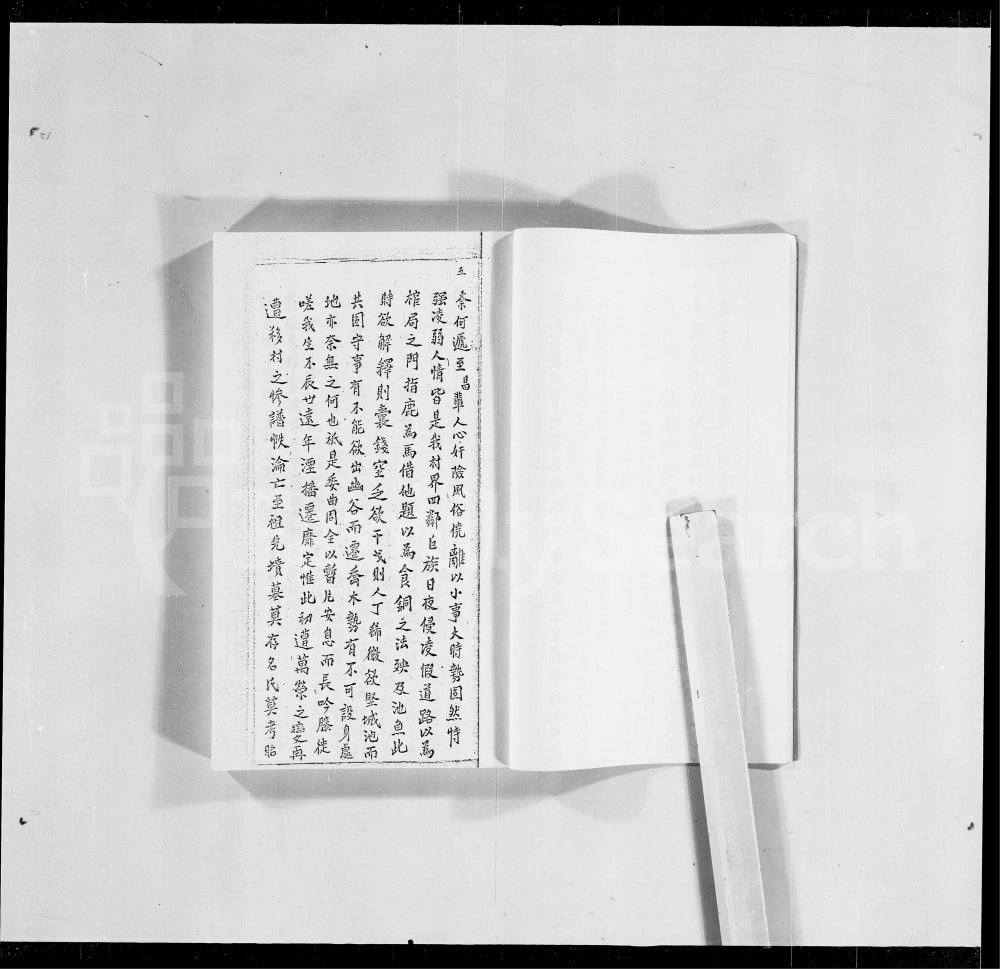 五
奈何遞至昌輩人心奸險風俗僥離以小事大時勢固然恃
强凌弱人情皆是我村界四鄰巨族日夜侵凌假道路以為
榨局之門指鹿為馬借他題以為食銅之法殃及池魚此
時欲解釋則囊錢空乏欲干戈則人丁稀微欲堅城池而
共固守事有不能欲出幽谷而遷喬木勢有不可設身處
地亦奈無之何也祇是委曲同全以暫片安息而長吟滕徙
嗟我生不辰世遠年湮播遷靡定惟此初遭萬榮之變再
遭移村之慘譜帙淪亡至祖先墳墓莫存名氏莫考昭